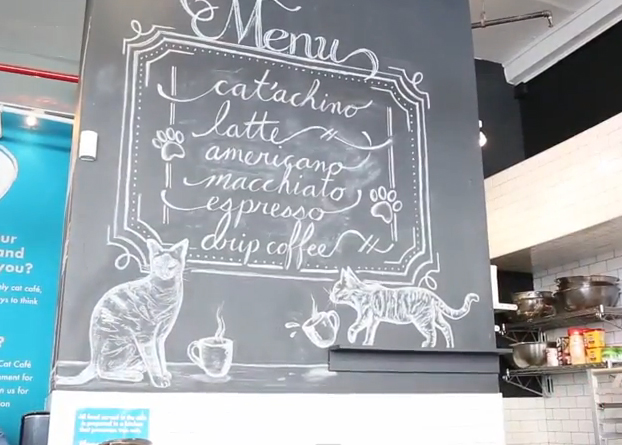 Menu
cat'achino
latte
americano
macchiato
espresso
drip coffee
ur
and
you?
nly cat café,
ys to think
?
Cat Café
ment for
n us for
on
All food served in the cafe
is prepared in a kitchen
that processes